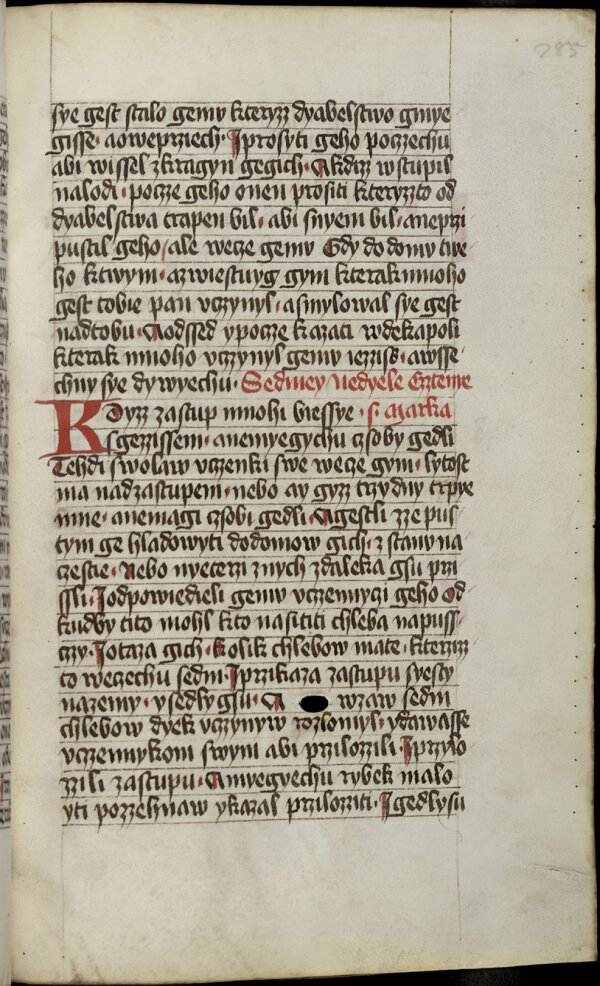 285
sye gest stalo gemu kteryzz dyabelstwo gmye
gisse · aoweprziech · Iprosyti geho poczechu
abi wissel zkragyn gegich · Akdizz wstupil
nalodi · pocze geho onen prositi kteryzzto od
dyabelstwa trapen bil · abi snyem bil · aneprzi
pustil geho / ale wecze gemu Gdy do domu twe
ho ktwym · azwiestuyg gym kterak mnoho
gest tobie pan vczynyl · asmylowal sye gest
nadtobu · Aodssed ypocze kazati wdekapoli
kterak mnoho vczynyl gemu iezziss · awsse
chny sye dywyechu · Sedmey Nedyele Czteme
Kdyzz zastup mnohi biessye · s Marka
sgezzissem · anemyegychu czsoby gedli
Tehdi swolaw vczenki swe wecze gym · lytost
ma nadzastupem · nebo ay gyzz trzy dny trpye
mne · anemagi czsobi gedli · Agestli zze pus
tym ge hladowyti dodomow gich · zstanu na
czestie · Nebo nyeterzi znych zdaleka gsu przi
ssli · Iodpowiedieli gemu vczennyczi geho Od
kudby tito mohl kto nasititi chleba napuss
czy · Iotaza gich · kolik chlebow mate · kteryzz
to weczechu sedm · Iprzikaza zastupu syesty
nazemy · vsedly gsu · A wzaw sedm
chlebow dyek vczynyw rozlomyl · ydawasse
vczennykom swym abi przilozzili · Iprzylo
zzili zastupu · Amyegyechu rybek malo
yti pozzehnaw ykazal przilozziti · Igedlysu